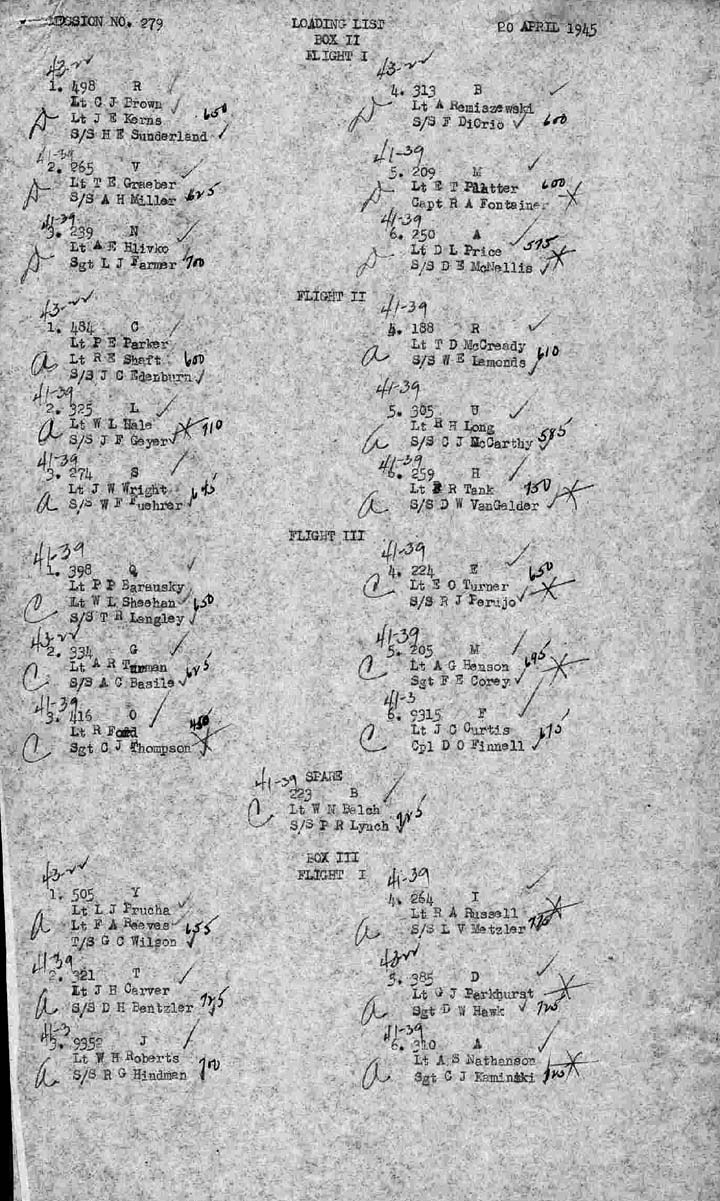 MISSION NO. 279 LOADING LIST 20 APRIL 1945
BOX II
FLIGHT I
43-22
1. 498 R
Lt C J Brown
Lt J E Kerns 650
D S/S H E Sunderland
43-22
4. 313 B
Lt A Remiszewski
D S/S F DiOrio 600
41-39
2. 265 V
Lt T E Graeber
D S/S A H Miller 625
41-39
5. 209 M
Lt E T Platter 600
D Capt R A Fontainer
41-39
3. 239 N
Lt A E Hlivko
D Sgt L J Farmer 700
41-39
6. 250 A
Lt D L Price 575
D S/S D E McNellis
FLIGHT II
43-22
1. 484 C
Lt P E Parker
a Lt R E Shaft 600
S/S J C Edenburn
41-39
4. 188 R
Lt T D McCready
a S/S W E Lamonds 610
41-39
2. 325 L
a Lt W L Hale
S/S J F Geyer 710
41-39
5. 305 U
Lt R H Long
a S/S C J McCarthy 585
41-39
3. 274 S
Lt J W Wright
a S/S W F Fuehrer
41-39
6. 259 H
Lt R Tank 750
a S/S D W VanGelder
FLIGHT III
41-39
1. 398 Q
Lt P P Barausky
C Lt W L Sheehan 650
S/S T R Langley
41-39
4. 224 E
C Lt E O Turner 650
S/S R J Perujo
43-22
2. 334 G
Lt A R Turman
C S/S A C Basile 625
41-39
5. 205 M
C Lt A G Henson 695
Sgt F E Corey
41-39
3. 416 O
Lt R Ford
C Sgt C J Thompson
41-3
6. 9315 F
Lt J C Curtis
C Cpl D O Finnell 675
SPARE
41-39
223 B
C Lt W N Balch
S/S P R Lynch 725
BOX III
FLIGHT I
43-22
1. 505 Y
Lt L J Prucha
a Lt F A Reeves 655
T/S G C Wilson
41-39
4. 264 I
Lt R A Russell
a S/S L V Metzler
41-39
2. 321 T
Lt J H Carver
a S/S D H Bentzler 725
43-22
5. 385 D
Lt G J Parkhurst
a Sgt D W Hawk 720
41-3
3. 9352 J
Lt W H Roberts
a S/S R G Hindman 700
41-39
6. 310 A
Lt A S Nathanson
a Sgt C J Kaminski